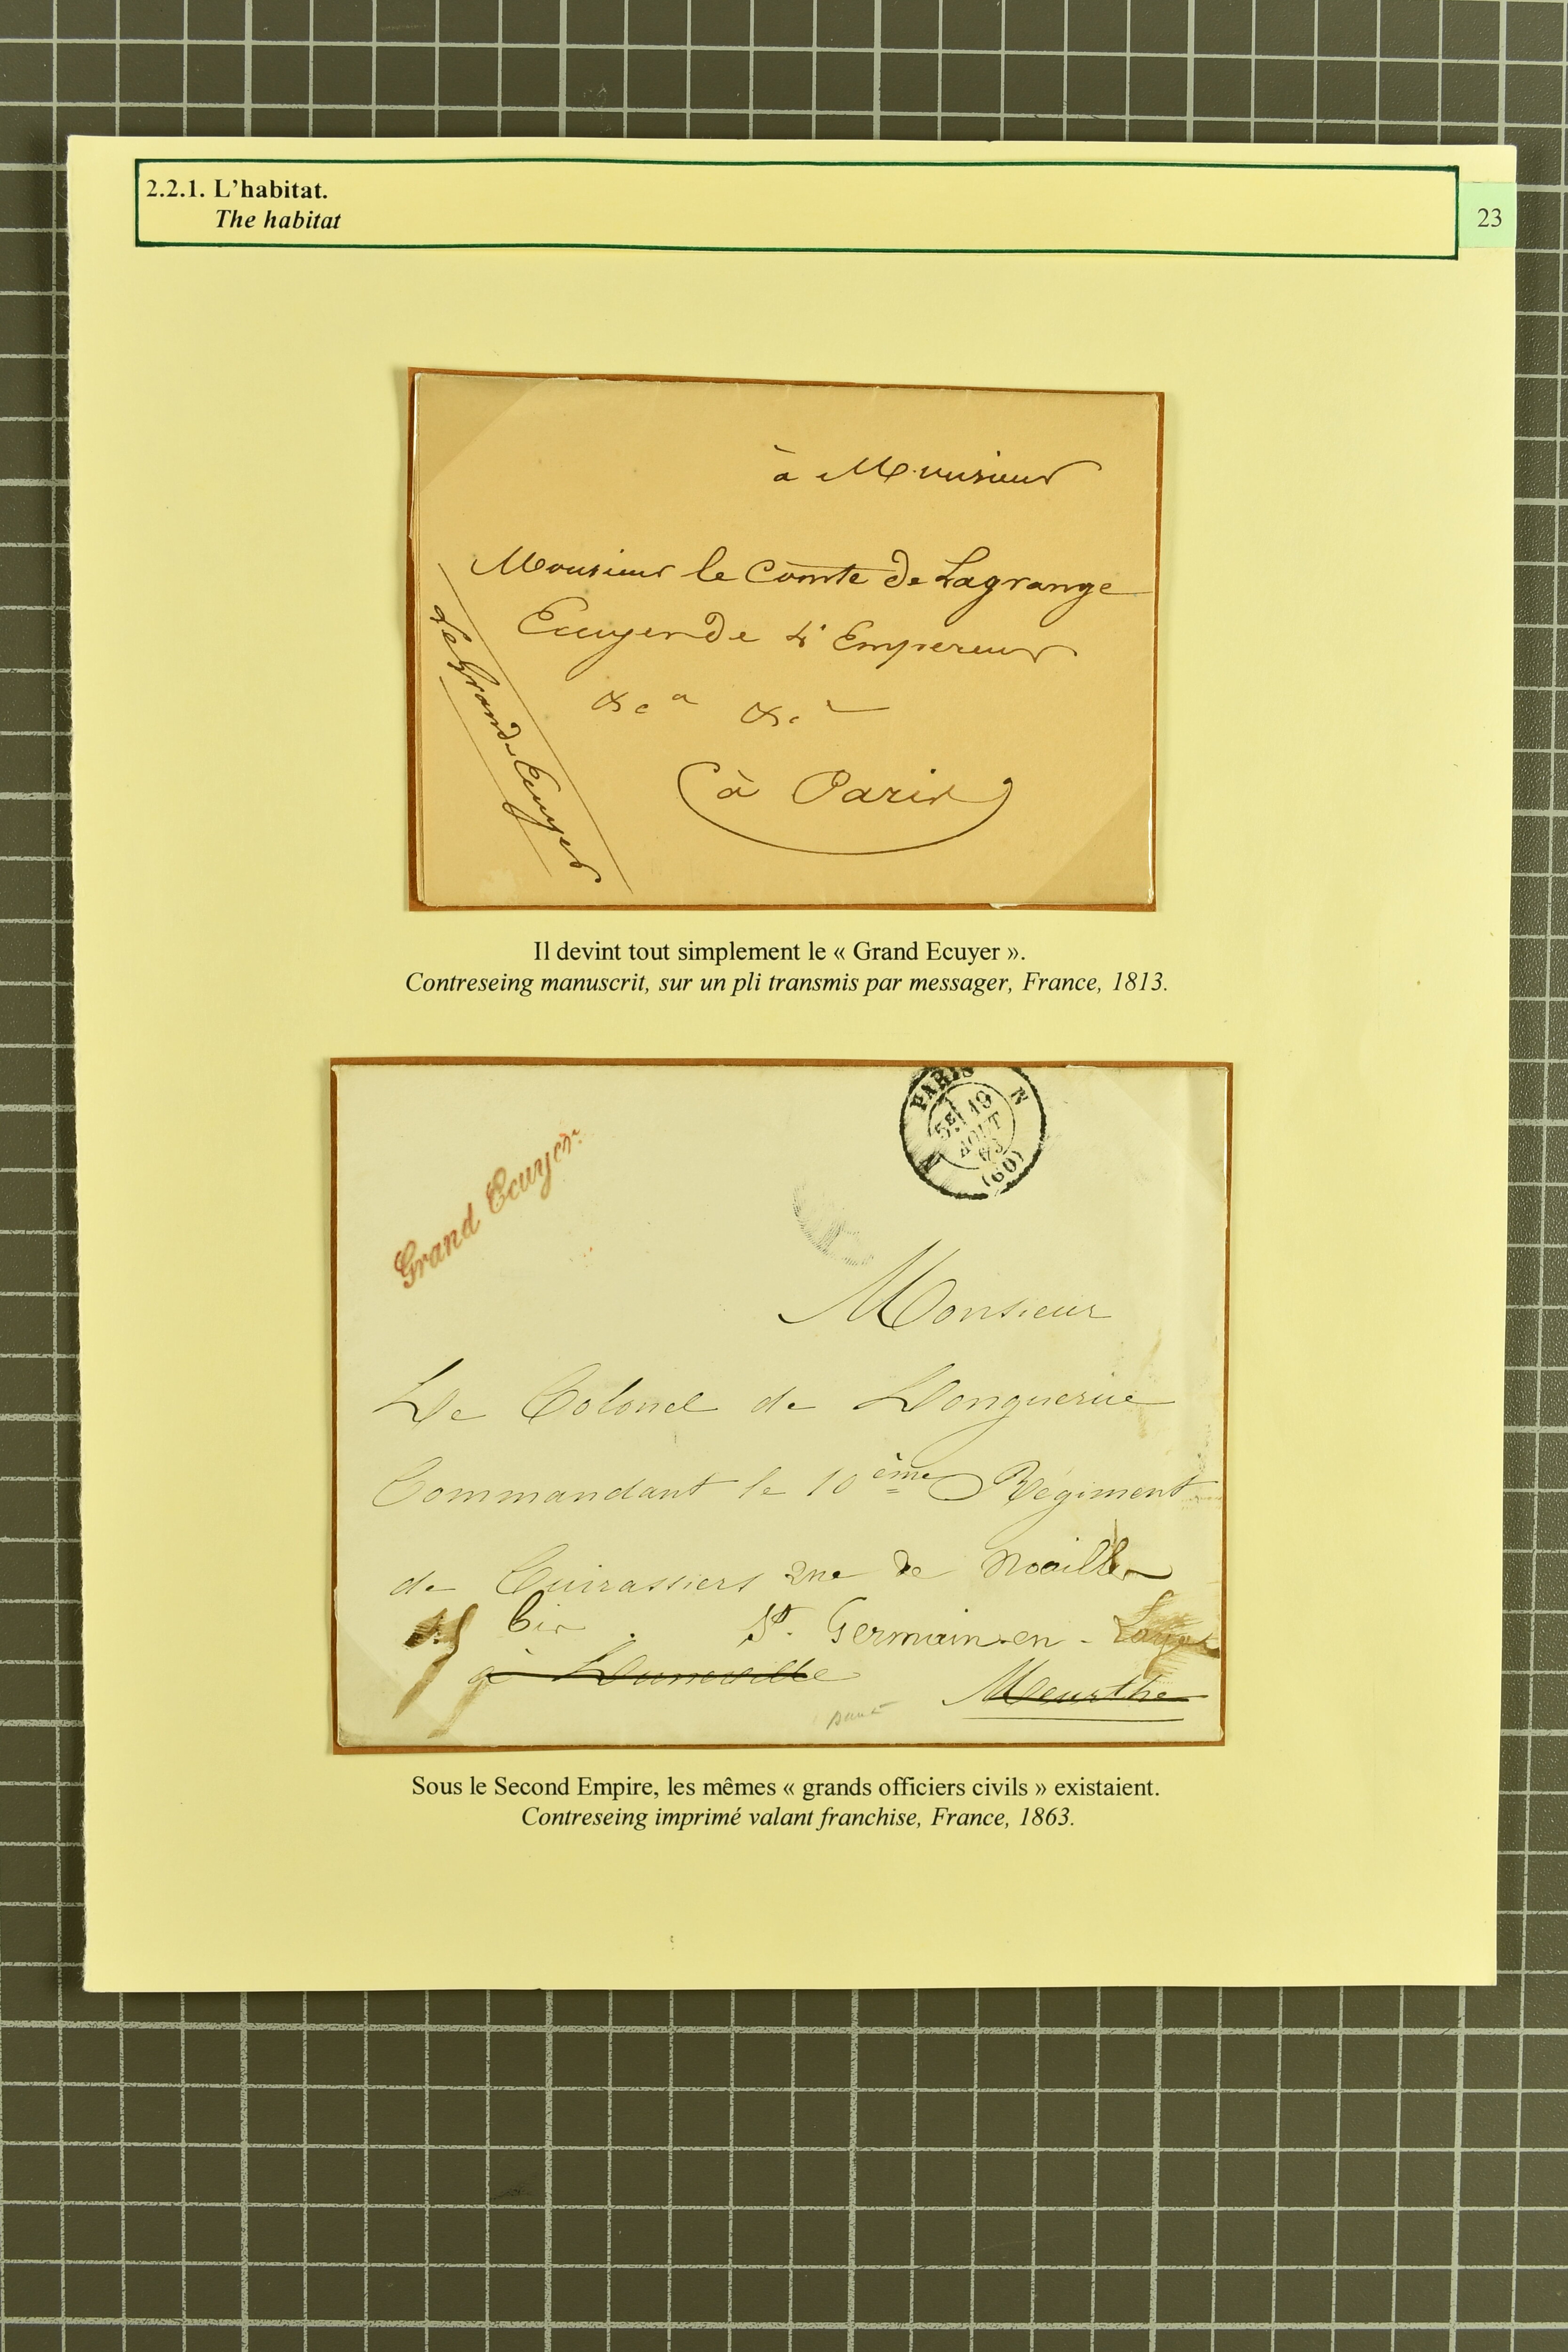 2.2.1. L'habitat.
The habitat
23
à Monsieur
Monsieur le Comte de Lagrange
Ecuyer de L'Empereur
&c a &c
à Paris
Le Grand Ecuyer
Il devint tout simplement le « Grand Ecuyer ».
Contreseing manuscrit, sur un pli transmis par messager, France, 1813.
PARIS
5E 19
AOUT
63
(60)
Grand Ecuyer
Monsieur
Le Colonel de Longuerue
Commandant le 10ème Régiment
de Cuirassiers rue de Noailles
bis St. Germain-en-Laye
à Luneville
Meurthe
Sous le Second Empire, les mêmes « grands officiers civils » existaient.
Contreseing imprimé valant franchise, France, 1863.